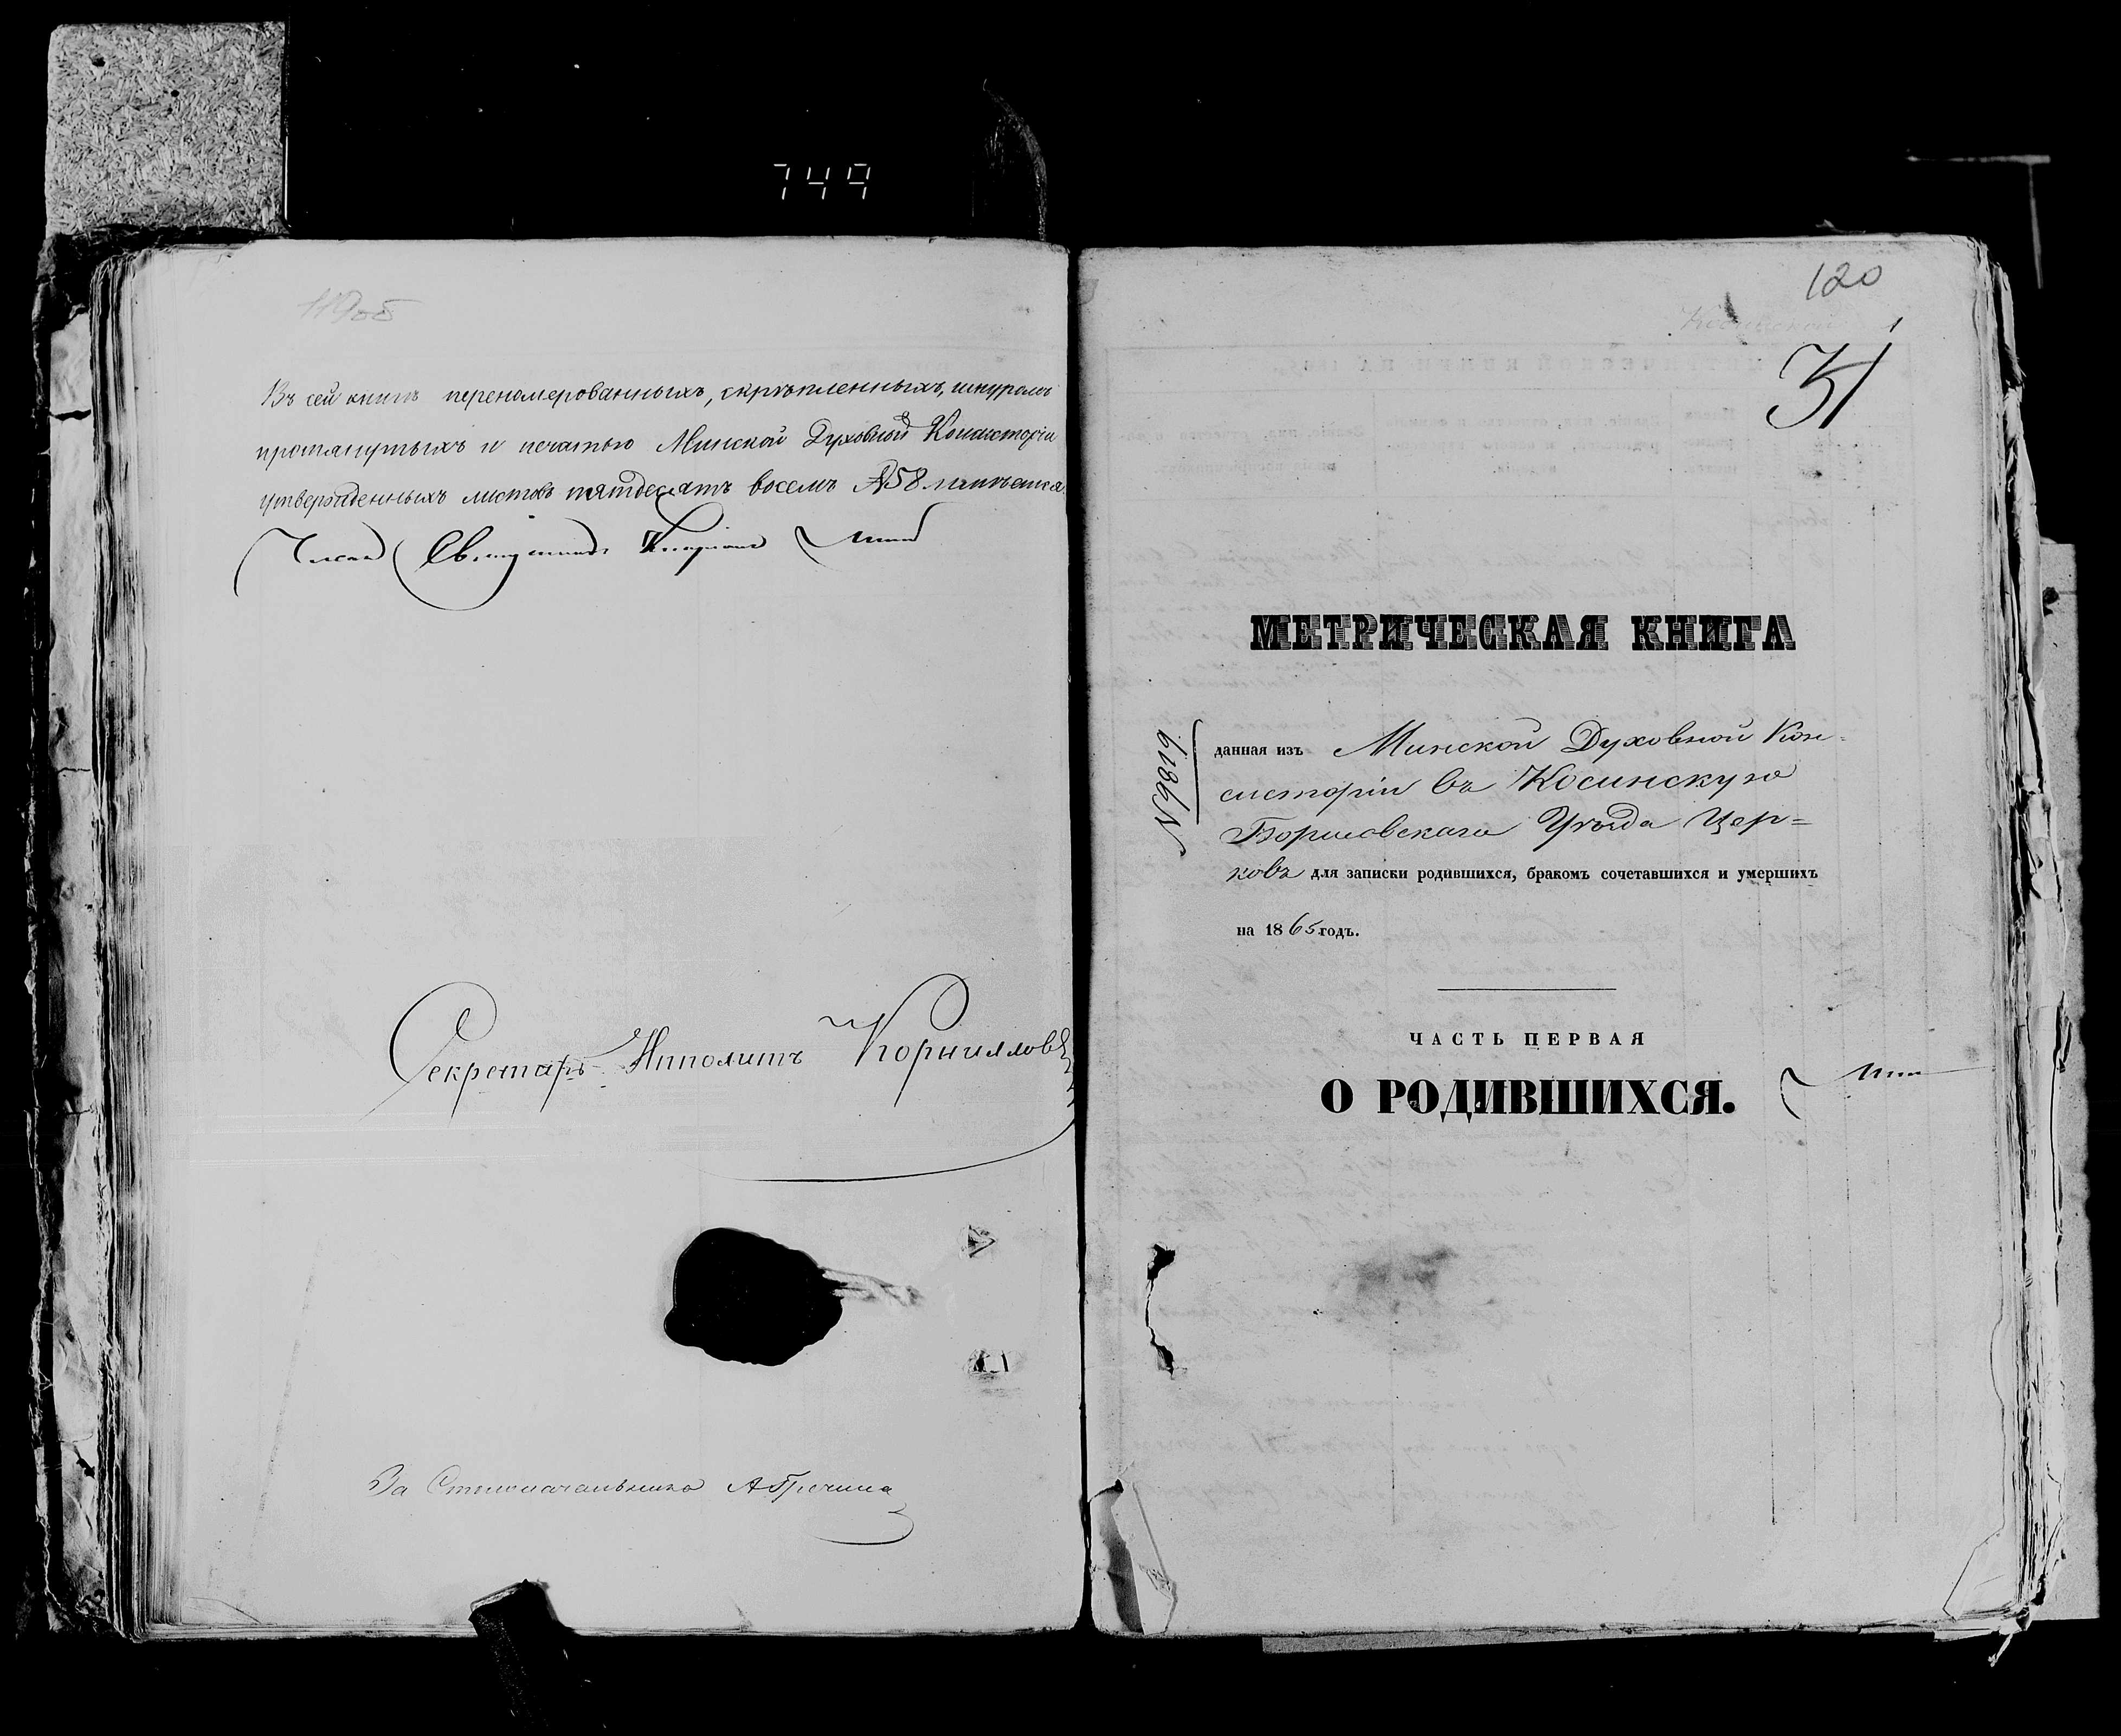 749
119об
Въ сей книгѣ перенумерованныхъ, скрѣпленныхъ, шнуромъ
протянутыхъ и печатью Минской Духовной Консисторіи
утвержденныхъ листовъ пятдесятъ восемъ №58
Членъ Священникъ
Секретарь Ипполитъ Корнилловъ
За Столоначальника
120
Косинской
1
31
МЕТРИЧЕСКАЯ КНИГА
№9819
данная изъ Минской Духовной Кон-
систоріи въ Косинскую
Борисовскаго Уѣзда Цер=
ковь для записки родившихся, бракомъ сочетавшихся и умершихъ
на 1865 годъ.
ЧАСТЬ ПЕРВАЯ
О РОДИВШИХСЯ.